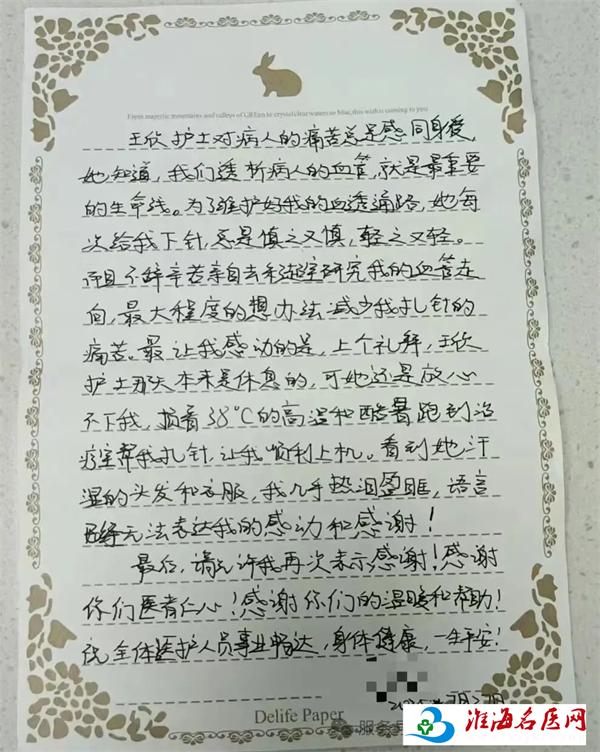 From majestic mountains and valleys of GREen to crystal clear waters so blue, this wish is coming to you
王欣护士对病人的痛苦总是感同身受,
她知道,我们透析病人的血管,就是最重要
的生命线。为了维护好我的血透通路,她每
次给我下针,总是慎之又慎,轻之又轻。
而且不辞辛苦亲自去彩超室研究我的血管走
向,最大程度的想办法减少我扎针的
痛苦。最让我感动的是,上个礼拜,王欣
护士那天本来是休息的,可她还是放心
不下我,顶着38℃的高温和酷暑跑到治
疗室帮我扎针,让我顺利上机。看到她汗
湿的头发和衣服,我几乎热泪盈眶,语言
已经无法表达我的感动和感谢!
最后,请允许我再次表示感谢!感谢
你们医者仁心!感谢你们的温暖和帮助!
祝全体医护人员事业畅达,身体健康,一生平安!
7月7日
Delife Paper
服务
淮海名医网